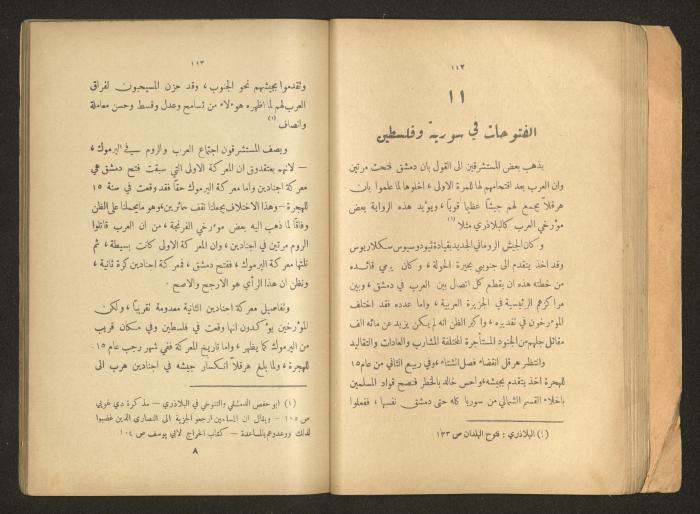 ١١٢
١١
الفتوحات في سورية وفلسطين
يذهب بعض المستشرقين الى القول بان دمشق فتحت مرتين
وان العرب بعد افتتاحهم لها للمرة الاولى ، اخلوها لما علموا بان
هرقلاً يجمع لهم جيشاً عظيما قوياً ، ويؤيد هذه الرواية بعض
مؤرخي العرب كالبلاذري مثلا (١)
وكان الجيش الروماني الجديد بقيادة ثيودوسيوس سكلاريوس
وقد اخذ يتقدم الى جنوبي بحيرة الحولة ، وكان يرمي قائده
من خطته هذه ان يقطع كل اتصال بين العرب في دمشق ، وبين
مراكزهم الرئيسية في الجزيرة العربية ، واما عدده فقد اختلف
المؤرخون في تقديره ، واكبر الظن انه لم يكن يزيد عن مائة الف
مقاتل جلهم من الجنود المستأجرة المختلفة المشارب والعادات والتقاليد
وانتظر هرقل انقضاء فصل الشتاء ، وفي ربيع الثاني من عام ١٥
للهجرة اخذ يتقدم بجيشه ، واحس خالد بالخطر فنصح قواد المسلمين
باخلاء القسم الشمالي من سوريا كله حتى دمشق نفسها ، ففعلوا
(١) البلاذري : فتوح البلدان ص ١٣٣
١١٣
وتقدموا بجيشهم نحو الجنوب ، وقد حزن المسيحيون لفراق
العرب لهم لما اظهره هؤلاء من تسامح وعدل وقسط وحسن معاملة
وانصاف (١)
ويصف المستشرقون اجتماع العرب والروم في اليرموك ،
– لانهم يعتقدون ان المعركة الاولى التي سبقت فتح دمشق هي
معركة اجنادين واما معركة اليرموك حقاً فقد وقعت في سنة ١٥
للهجرة – وهذا الاختلاف يجعلنا نقف حائرين ، وهو ما يحملنا على الظن
وفاقاً لما ذهب اليه بعض مؤرخي الفرنجة ، من ان العرب قاتلوا
الروم مرتين في اجنادين ، وان المعركة الاولى كانت بسيطة ، ثم
تلتها معركة اليرموك ، ففتح دمشق ، فمعركة اجنادين كرة ثانية ،
ونظن ان هذا الرأي هو الارجح والاصح .
وتفاصيل معركة اجنادين الثانية معدومة تقريباً ، ولكن
المؤرخين يؤكدون انها وقعت في فلسطين وفي مكان قريب
من اليرموك كما يظهر ، واما تاريخ المعركة ففي شهر رجب عام ١٥
للهجرة ، ولما بلغ هرقلاً انكسار جيشه في اجنادين هرب الى
(١) ابو حفص الدمشقي والتنوخي في البلاذري – مذكرة دي غوبي
ص ١٠٥ – ويقال ان المسلمين ارجعوا الجزية الى النصارى الذين غضبوا
لذلك ووعدوهم بالمساعدة – كتاب الخراج لابي يوسف ص ١٠٤
٨